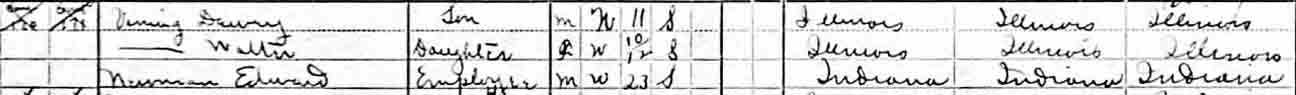 Vining Dewey Son M W 11 S Illinois Illinois Illinois
—— Walter Daughter F W 10/12 S Illinois Illinois Illinois
Newman Edward Employee M W 23 S Indiana Indiana Indiana